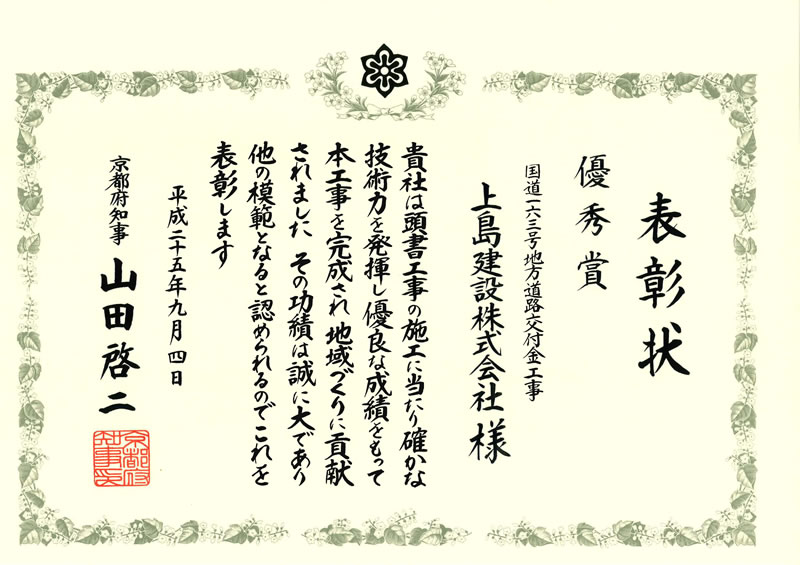 表彰状
優秀賞
国道一六三号地方道路交付金工事
上島建設株式会社様
貴社は頭書工事の施工に当たり確かな
技術力を発揮し優良な成績をもって
本工事を完成され地域づくりに貢献
されました その功績は誠に大であり
他の模範となると認められるのでこれを
表彰します
平成二十五年九月四日
京都府知事 山田啓二
京都府
知事印